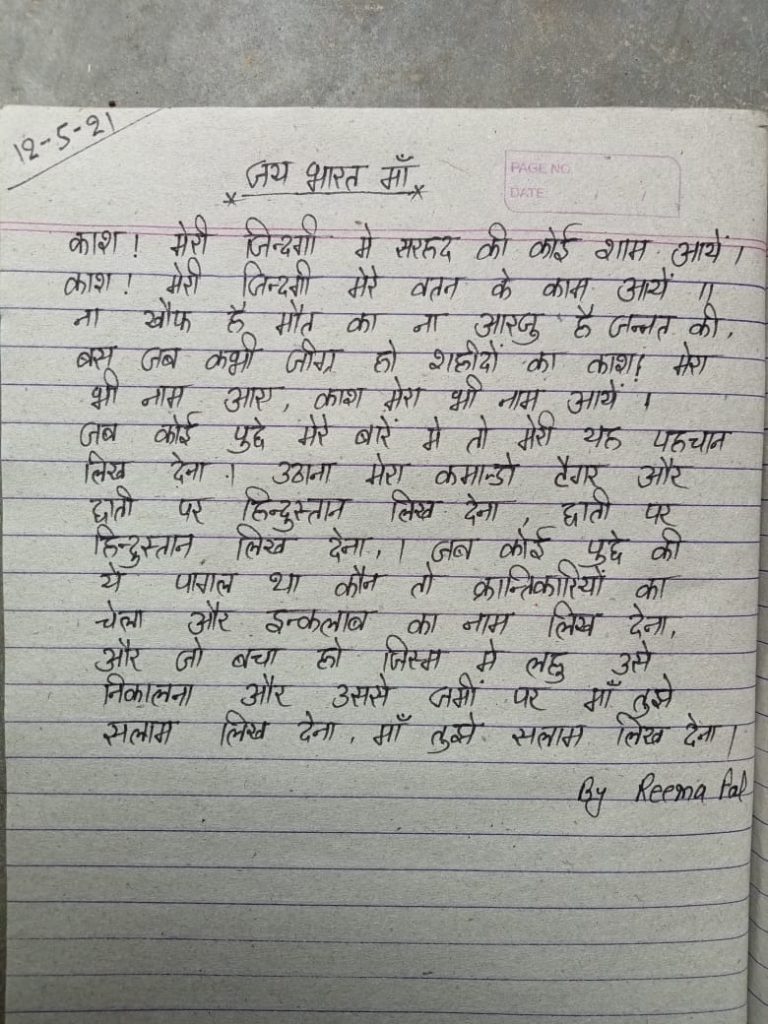 12-5-21
जय भारत माँ
PAGE NO.
DATE
काश! मेरी जिन्दगी मे सरहद की कोई शाम आयें।
काश! मेरी जिन्दगी मेरे वतन के काम आयें॥
ना खौफ है मौत का ना आरजु है जन्नत की,
बस जब कभी जीग्र हो शहीदों का काश! मेरा
भी नाम आए, काश मेरा भी नाम आयें।
जब कोई पुछे मेरे बारें मे तो मेरी यह पहचान
लिख देना। उठाना मेरा कमान्डो टैगर और
छाती पर हिन्दुस्तान लिख देना, छाती पर
हिन्दुस्तान लिख देना,। जब कोई पुछे की
ये पागल था कौन तो क्रान्तिकारियों का
चेला और इन्कलाब का नाम लिख देना,
और जो बचा हो जिस्म मे लहु उसे
निकालना और उससे जमीं पर माँ तुझे
सलाम लिख देना, माँ तुझे सलाम लिख देना।
By Reema Pal